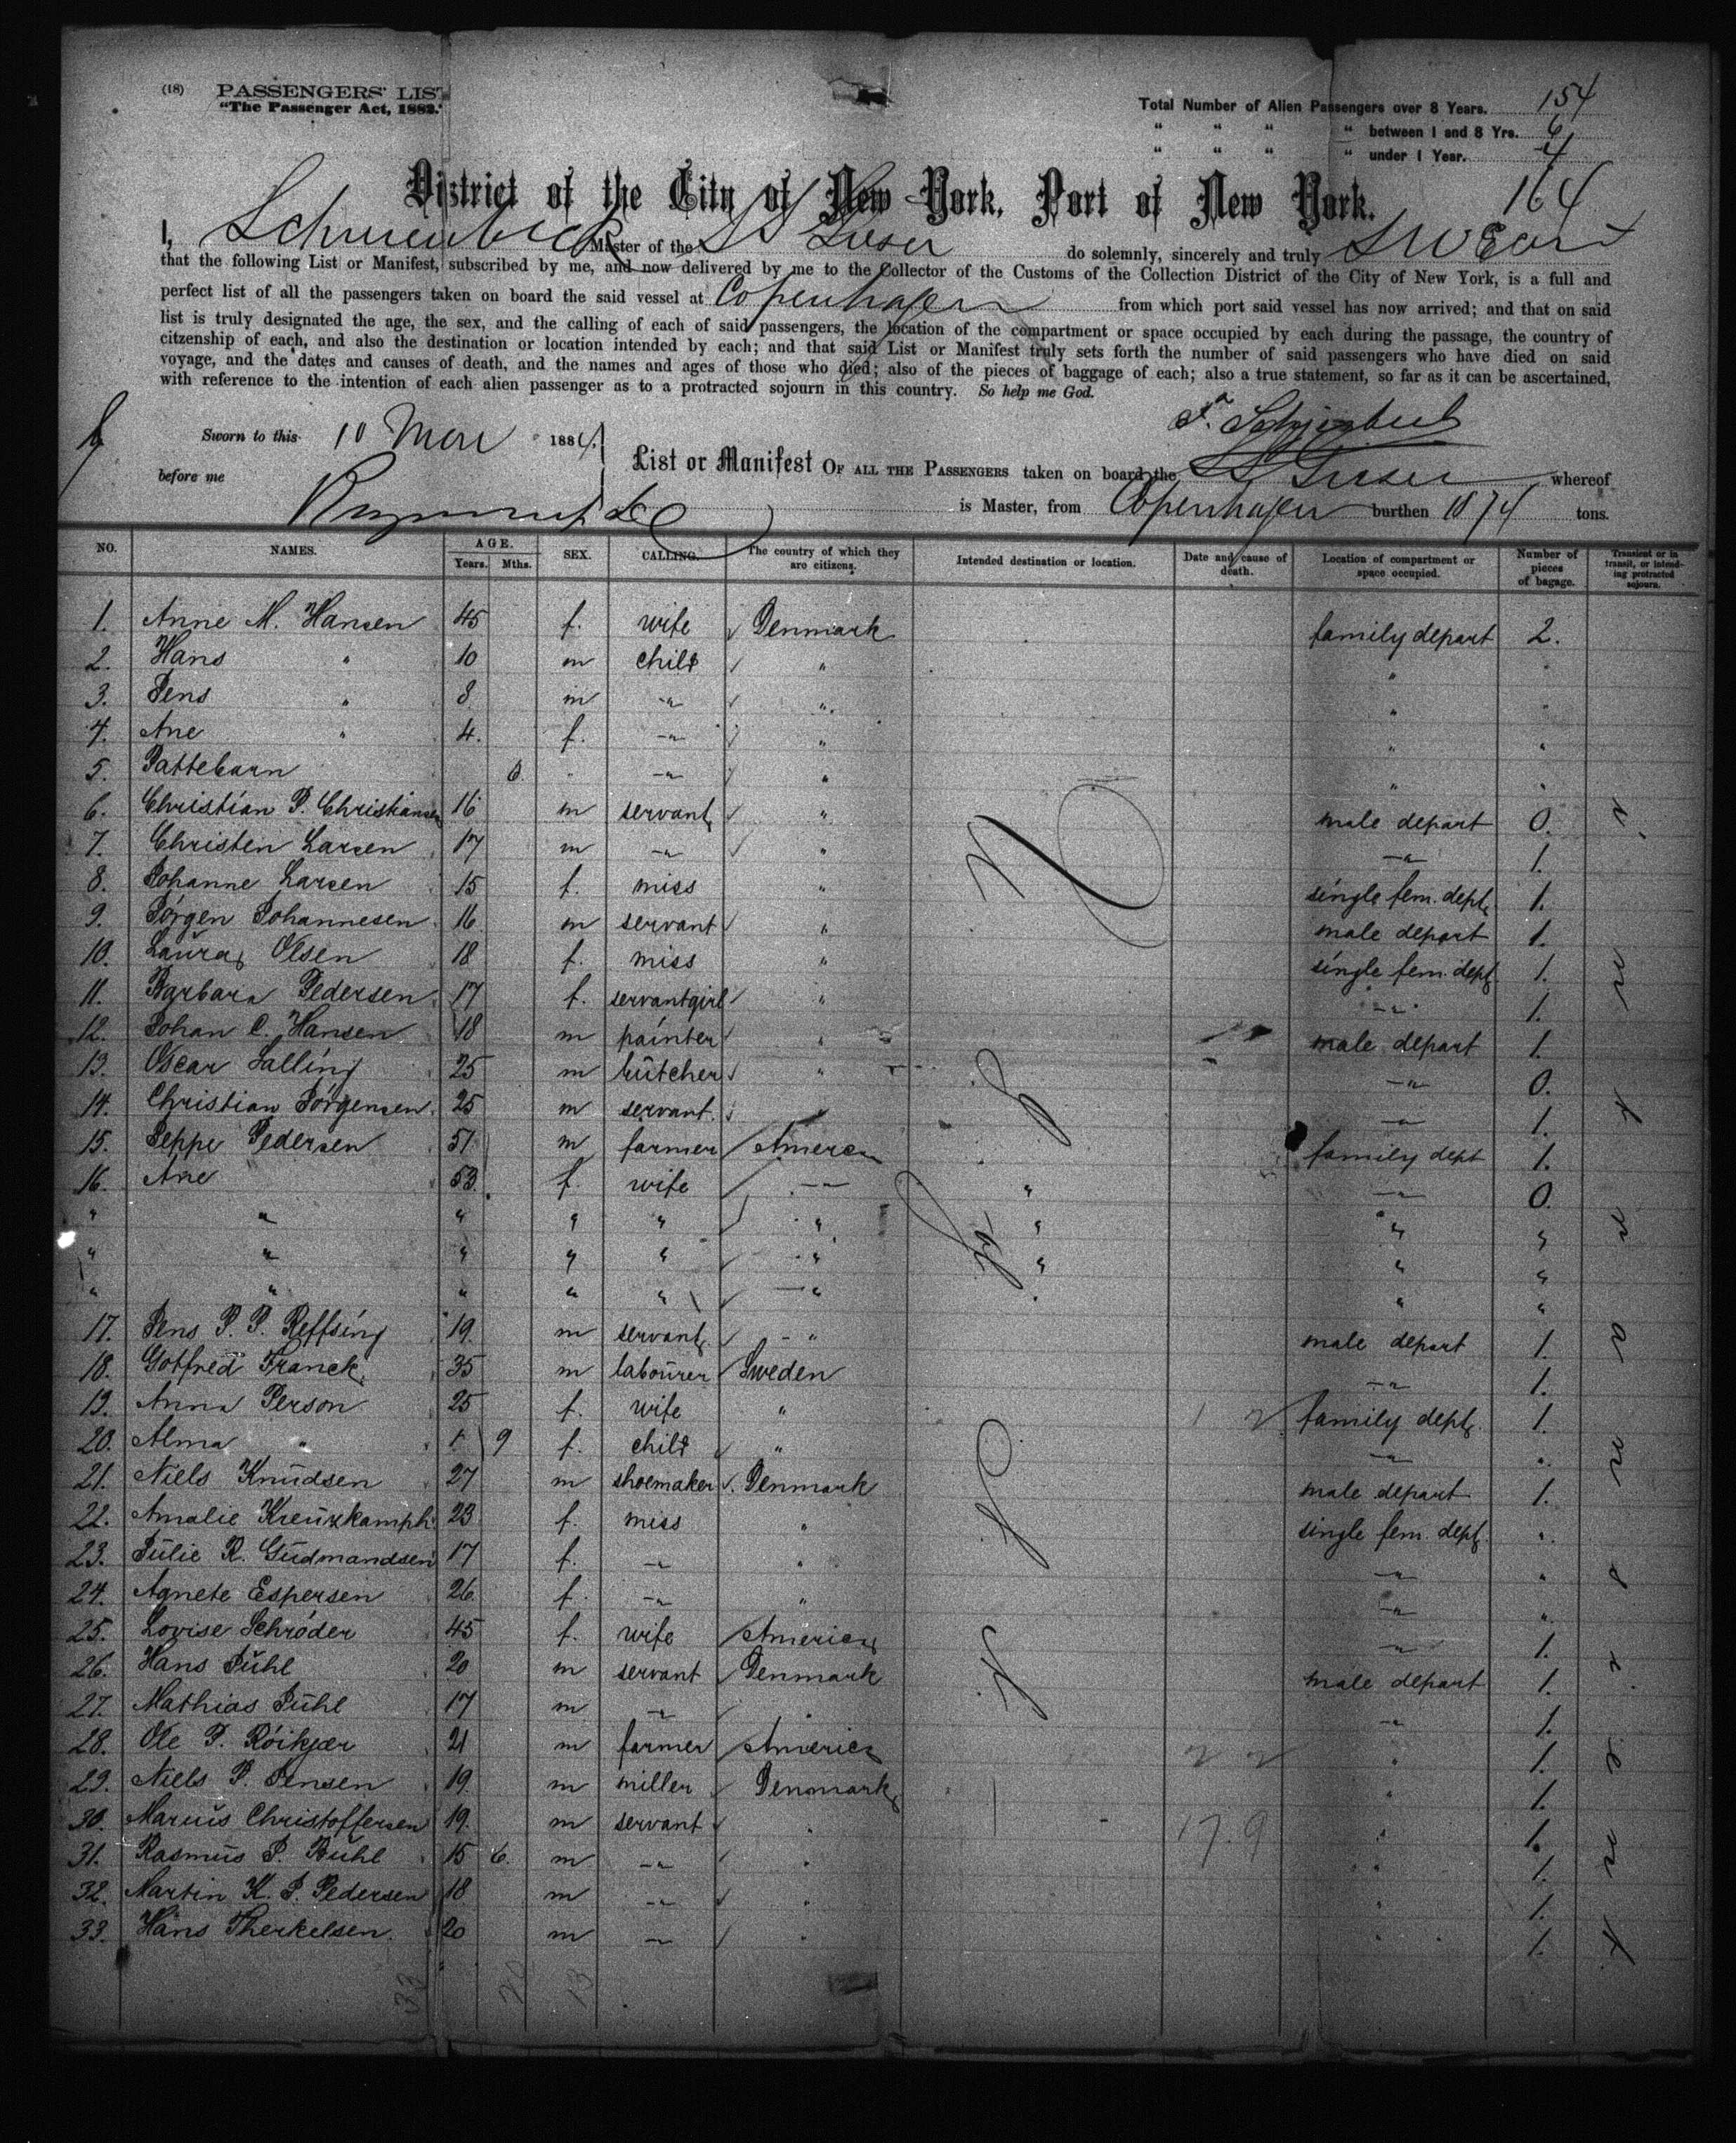 (18) PASSENGERS' LIST
"The Passenger Act, 1882."
Total Number of Alien Passengers over 8 Years. 154
" " " " between 1 and 8 Yrs. 6
" " " " under 1 Year. 4
164
District of the City of New York, Port of New York.
I, Master of the SS do solemnly, sincerely and truly Swear
that the following List or Manifest, subscribed by me, and now delivered by me to the Collector of the Customs of the Collection District of the City of New York, is a full and
perfect list of all the passengers taken on board the said vessel at Copenhagen from which port said vessel has now arrived; and that on said
list is truly designated the age, the sex, and the calling of each of said passengers, the location of the compartment or space occupied by each during the passage, the country of
citzenship of each, and also the destination or location intended by each; and that said List or Manifest truly sets forth the number of said passengers who have died on said
voyage, and the dates and causes of death, and the names and ages of those who died; also of the pieces of baggage of each; also a true statement, so far as it can be ascertained,
with reference to the intention of each alien passenger as to a protracted sojourn in this country. So help me God.
Sworn to this 10 1884
before me
List or Manifest OF ALL THE PASSENGERS taken on board the SS whereof
is Master, from Copenhagen burthen 1874 tons.
NO. NAMES. AGE. Years. Mths. SEX. CALLING. The country of which they are citizens. Intended destination or location. Date and cause of death. Location of compartment or space occupied. Number of pieces of bagage. Transient or in transit, or intending protracted sojourn.
1. Anne M. Hansen 45 f. wife Denmark family depart 2.
2. Hans " 10 m child " " "
3. Jens " 8 m -"- " " "
4. Ane " 4. f. -"- " " "
5. Pattebarn 6. -"- " " "
6. Christian P. Christiansen 16 m servant " male depart 0.
7. Christen Larsen 17 m -"- " -"- 1.
8. Johanne Larsen 15 f. miss " single fem. dept. 1.
9. Jörgen Johannesen 16 m servant " male depart 1.
10. Laura Olsen 18 f. miss " single fem. dept. 1.
11. Barbara Pedersen 17 f. servantgirl " -"- 1.
12. Johan C. Hansen 18 m painter " male depart 1.
13. Oscar Salling 25 m butcher " -"- 0.
14. Christian Jörgensen 25 m servant. " -"- 1.
15. Jeppe Pedersen 51 m farmer America family dept 1.
16. Ane 53 f. wife -"- " -"- 0.
" " " " " " " " "
" " " " " " " " "
" " " " " " " "
17. Jens P. P. Reffsing 19. m servant " male depart 1.
18. Gotfred Franck 35 m labourer Sweden -"- 1.
19. Anna Person 25 f. wife " family dept. 1.
20. Alma " 1 9 f. child " -"- "
21. Niels Knudsen 27 m shoemaker Denmark male depart 1.
22. Amalie Kreuzkamph 23 f. miss " single fem. dept. "
23. Julie R. Gudmandsen 17 f. -"- " -"- "
24. Agnete Espersen 26 f. -"- " -"- "
25. Lovise Schröder 45 f. wife America -"- 1.
26. Hans Juhl 20 m servant Denmark male depart 1.
27. Mathias Juhl 17 m -"- " -"- 1.
28. Ole P. Röikjær 21 m farmer America " 1.
29. Niels P. Jensen 19. m miller Denmark " 1.
30. Marius Christoffersen 19. m servant " " 1.
31. Rasmus P. Buhl 15 6. m -"- " " 1.
32. Martin K. J. Pedersen 18 m -"- " " 1.
33. Hans Therkelsen. 20 m -"- " " 1.
33 20 13